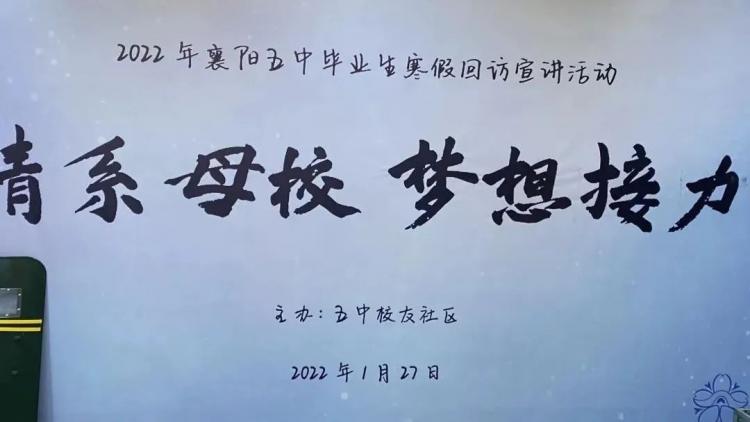 2022年襄阳五中毕业生寒假回访宣讲活动
情系母校 梦想接力
主办:五中校友社区
2022年1月27日